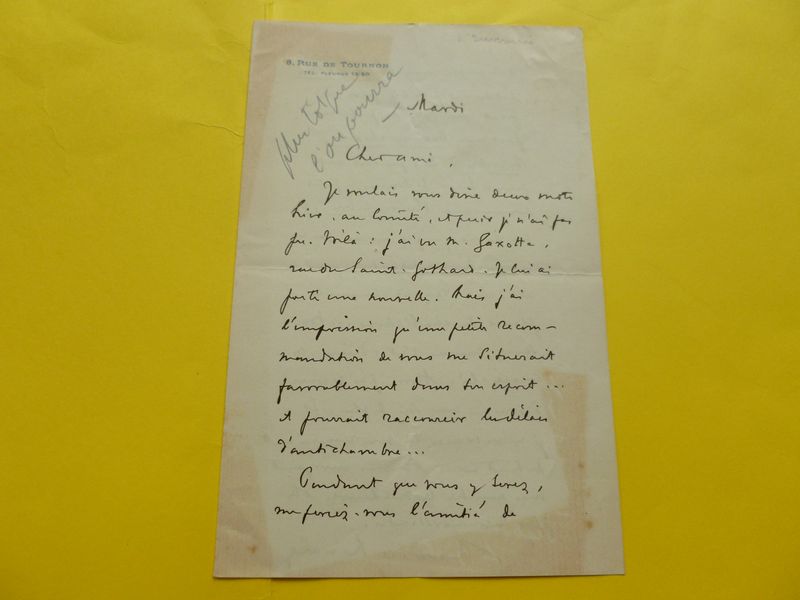 8, RUE DE TOURNON
TÉL. FLEURUS
plutôt que
l'on pourra
Mardi
Cher ami,
Je voulais vous dire deux mots
hier, au Comité, et puis je n'ai pas
pu. Voilà : j'ai vu M. Gaxotte,
rue du Saint-Gothard. Je lui ai
porté une nouvelle. Mais j'ai
l'impression qu'une petite recom-
mandation de vous me situerait
favorablement dans son esprit...
et pourrait raccourcir les délais
d'antichambre...
Pendant que vous y serez,
me feriez-vous l'amitié de